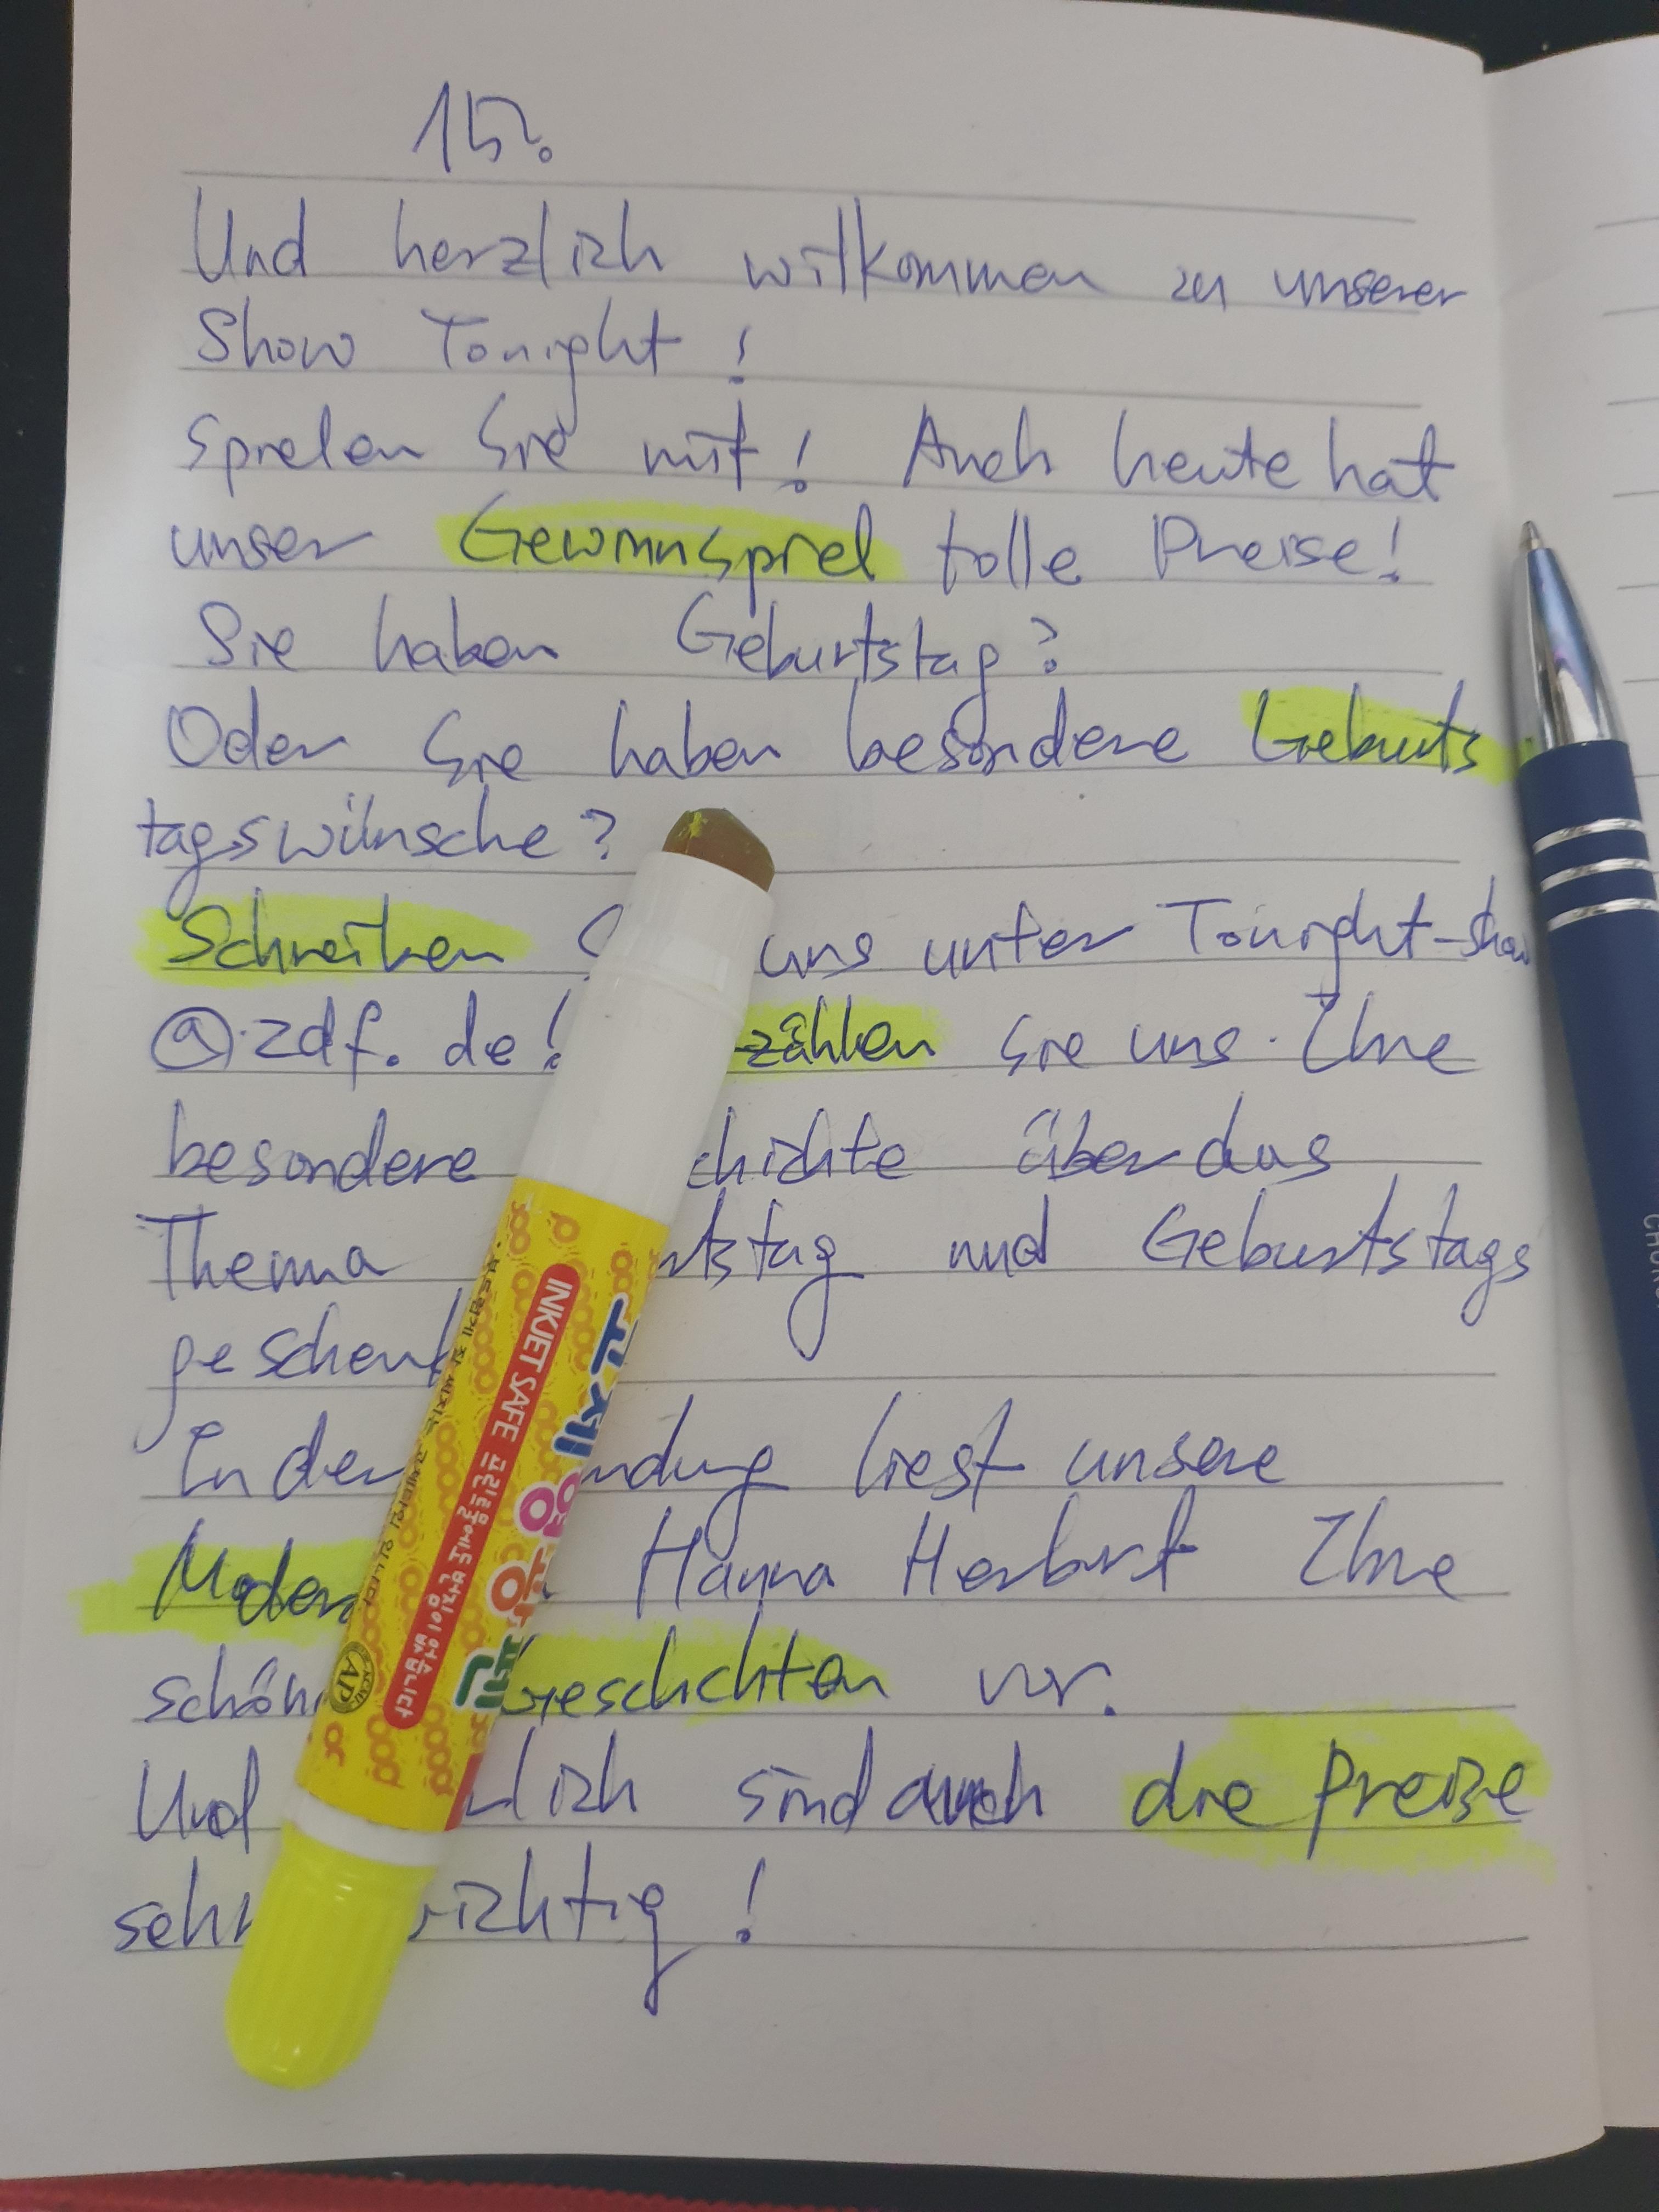 15.
Und herzlich willkommen zu unserer
Show Tonight!
Spielen Sie mit! Auch heute hat
unser Gewinnspiel tolle Preise!
Sie haben Geburtstag?
Oder Sie haben besondere Geburts
tagswünsche?
Schreiben uns unter Tonight-show
@.zdf.de! zählen Sie uns Ihre
besondere chichte über das
Thema rtstag und Geburtstags
geschenk
In der ndung liest unsere
Moder Hanna Herbst Ihne
schön Geschichten vor.
Und lich sind auch die Preise
sehr ichtig!
INKJET SAFE 프린트물에도 번짐이 없습니다
형광펜
AP